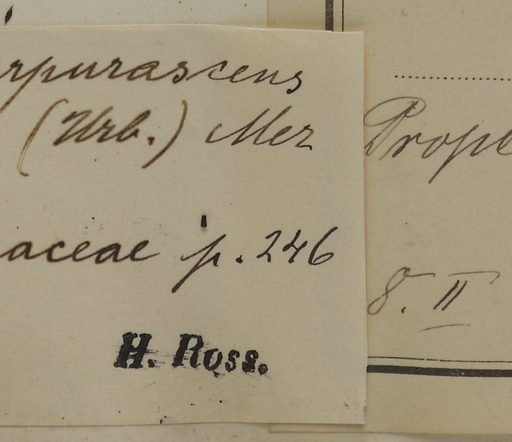 rpurascens
(Urb.) Mez
aceae p. 246
H. Ross.
Prope
8. II